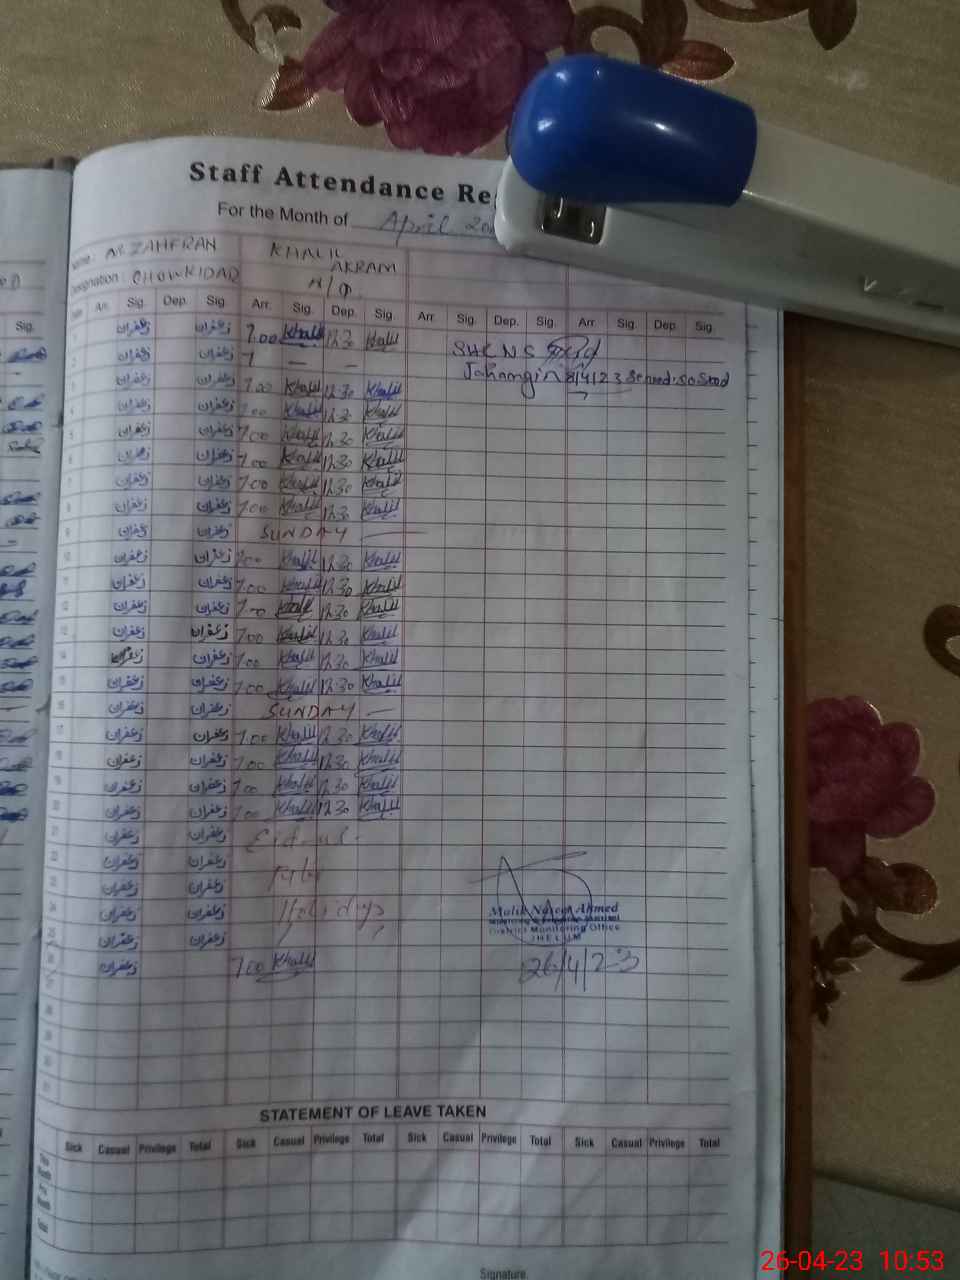 Staff Attendance Re
For the Month of April 20
Name: ZAHFRAN KHALIL
AKRAM
Designation: CHOWKIDAR N/Q
Arr. Sig. Dep. Sig. Arr. Sig. Dep. Sig. Arr. Sig. Dep. Sig. Arr. Sig. Dep. Sig.
1 زعفران زعفران 7.00 Khalil 12.30 Khalil SHC NS
2 زعفران زعفران — —
Jahangir 8/4/23
3 زعفران زعفران 7.00 Khalil 12.30 Khalil
4 زعفران زعفران 7.00 Khalil 12.30 Khalil
5 زعفران زعفران 7.00 Khalil 12.30 Khalil
6 زعفران زعفران 7.00 Khalil 12.30 Khalil
7 زعفران زعفران 7.00 Khalil 12.30 Khalil
8 زعفران زعفران 7.00 Khalil 12.30 Khalil
9 زعفران زعفران SUNDAY —
10 زعفران زعفران 7.00 Khalil 12.30 Khalil
11 زعفران زعفران 7.00 Khalil 12.30 Khalil
12 زعفران زعفران 7.00 Khalil 12.30 Khalil
13 زعفران زعفران 7.00 Khalil 12.30 Khalil
14 زعفران زعفران 7.00 Khalil 12.30 Khalil
15 زعفران زعفران 7.00 Khalil 12.30 Khalil
16 زعفران زعفران SUNDAY —
17 زعفران زعفران 7.00 Khalil 12.30 Khalil
18 زعفران زعفران 7.00 Khalil 12.30 Khalil
19 زعفران زعفران 7.00 Khalil 12.30 Khalil
20 زعفران زعفران 7.00 Khalil 12.30 Khalil
21 زعفران زعفران Eid-ul-
22 زعفران زعفران Fitr
23 زعفران زعفران
24 زعفران زعفران Holidays
Malik Naseer Ahmed
District Monitoring Office
JHELUM
25 زعفران زعفران
26 زعفران 7.00 Khalil 26/4/23
27
28
29
30
31
STATEMENT OF LEAVE TAKEN
Sick Casual Privilege Total Sick Casual Privilege Total Sick Casual Privilege Total Sick Casual Privilege Total
Total
Signature.
26-04-23 10:53